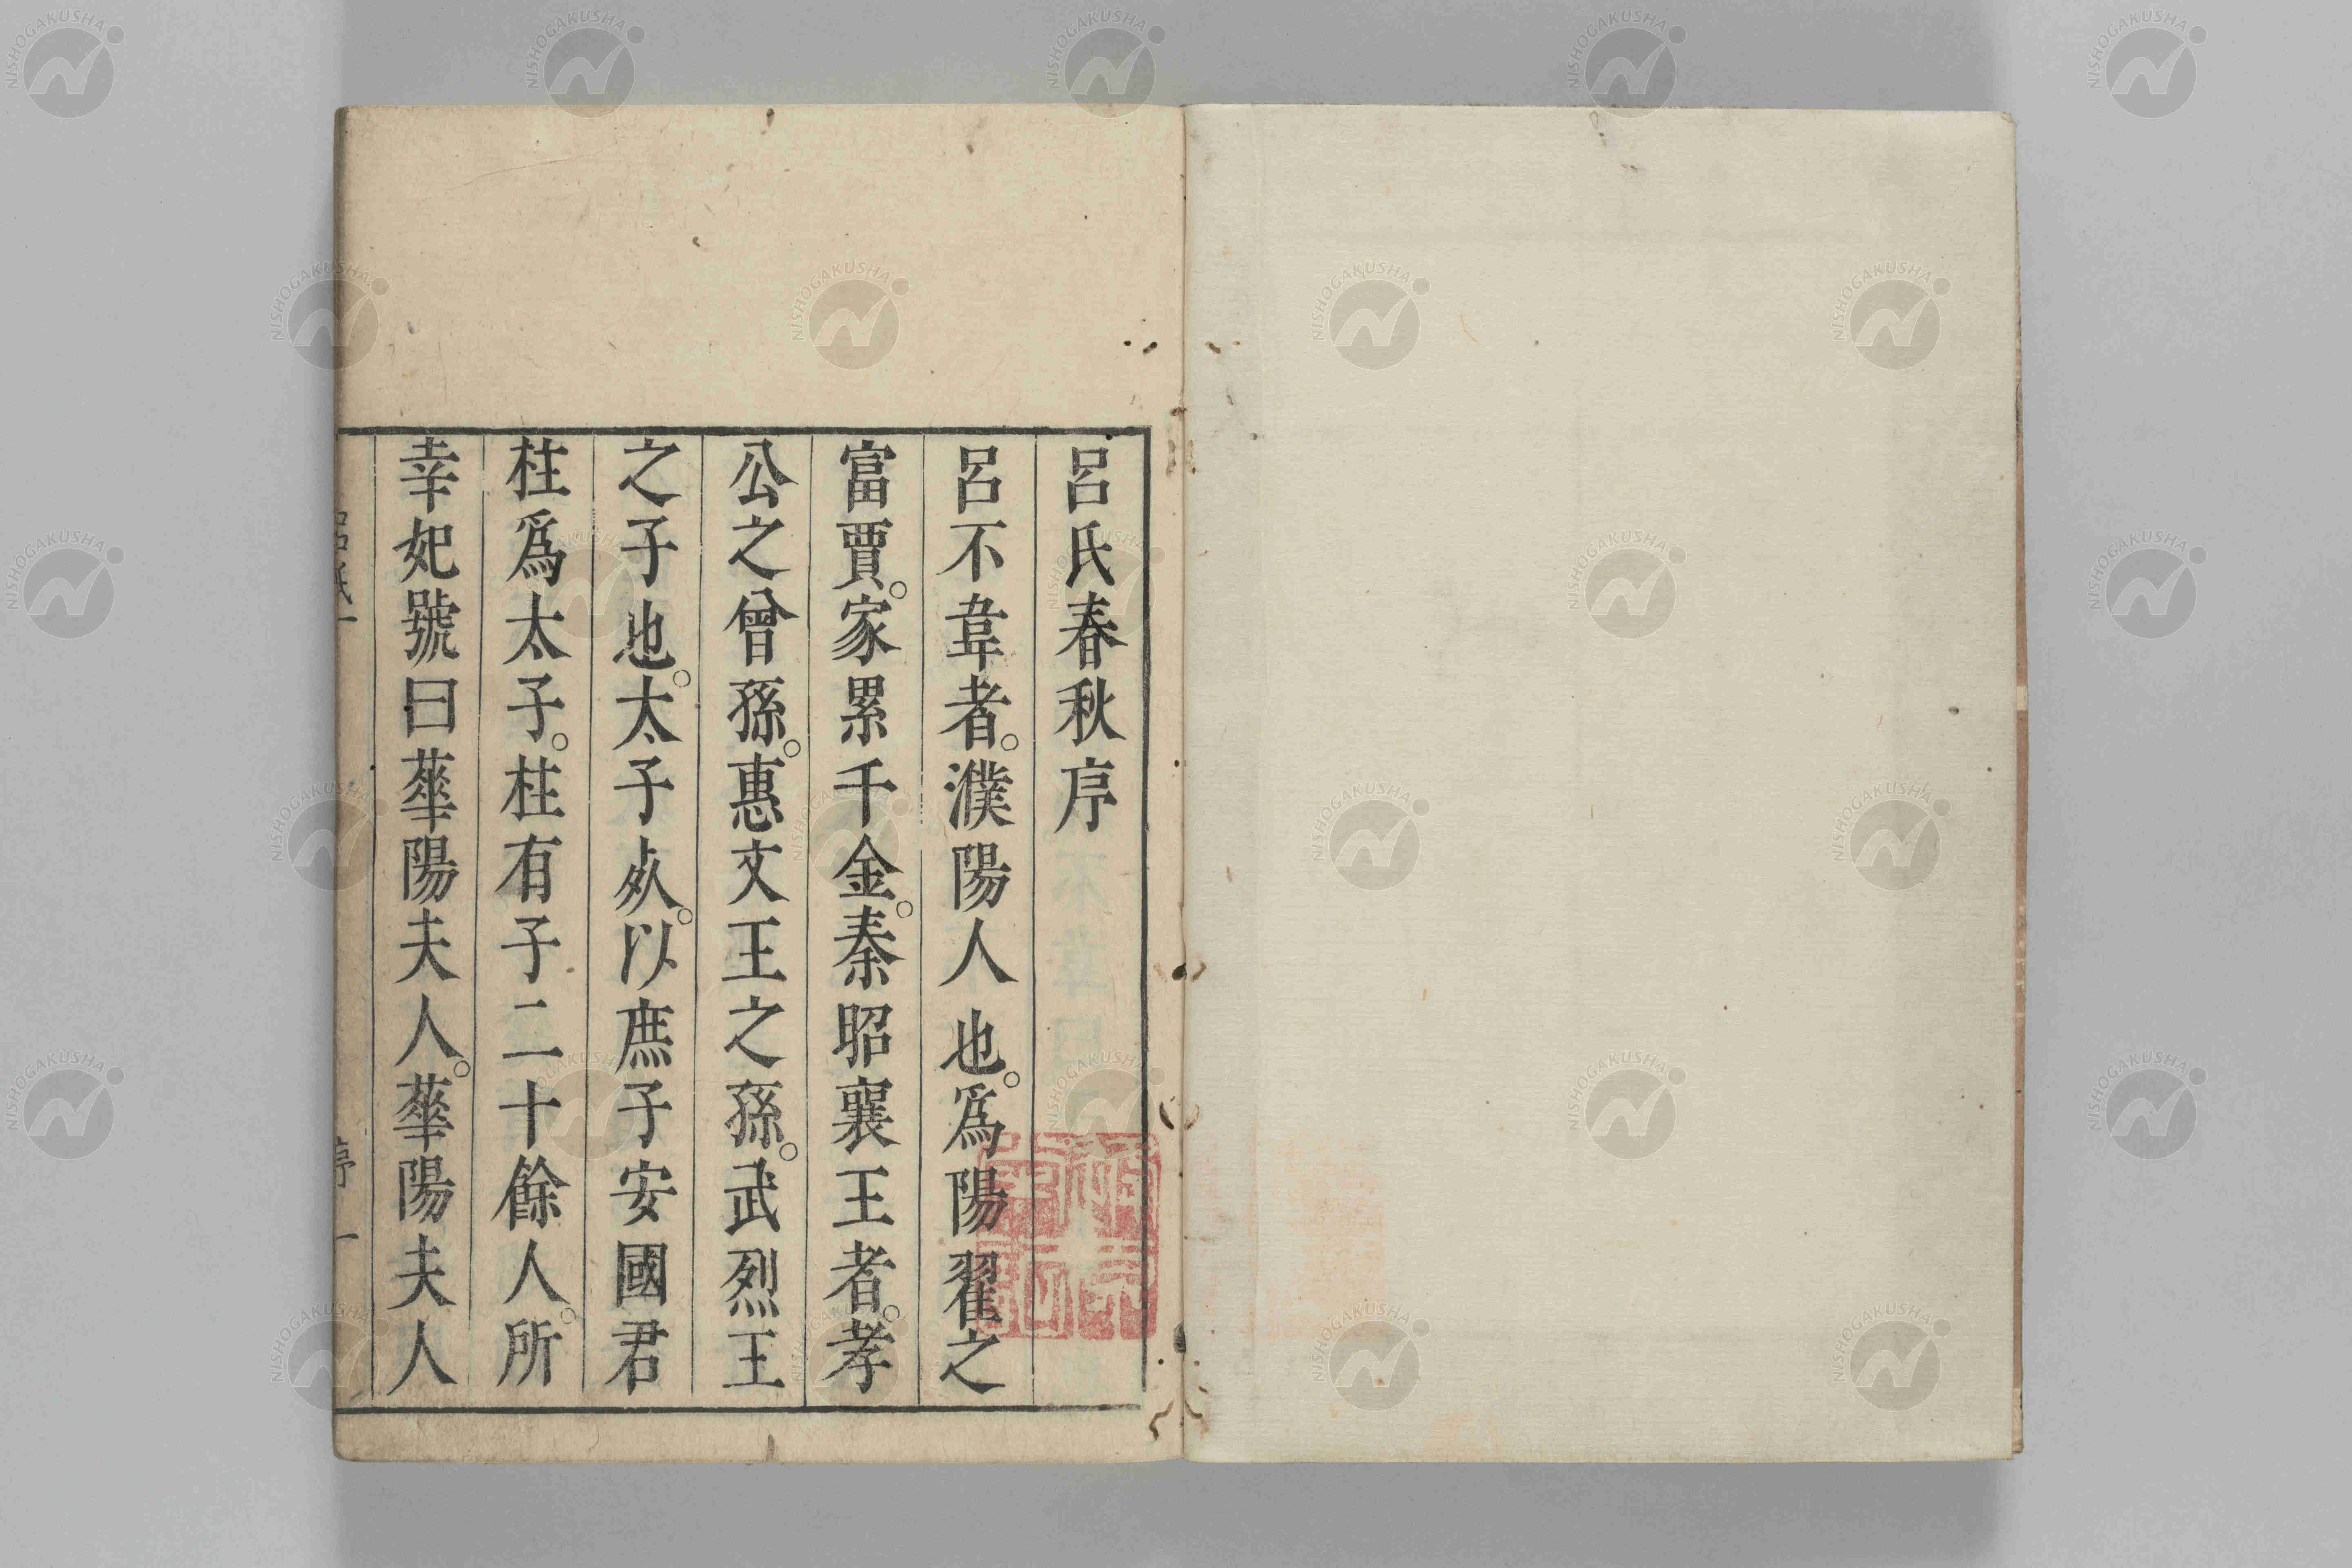 呂氏春秋序
呂不韋者。濮陽人也。爲陽翟之
富賈。家累千金。秦昭襄王者。孝
公之曾孫。惠文王之孫。武烈王
之子也。太子死。以庶子安國君
柱爲太子。柱有子二十餘人。所
幸妃號曰華陽夫人。華陽夫人
序一
NISHOGAKUSHA